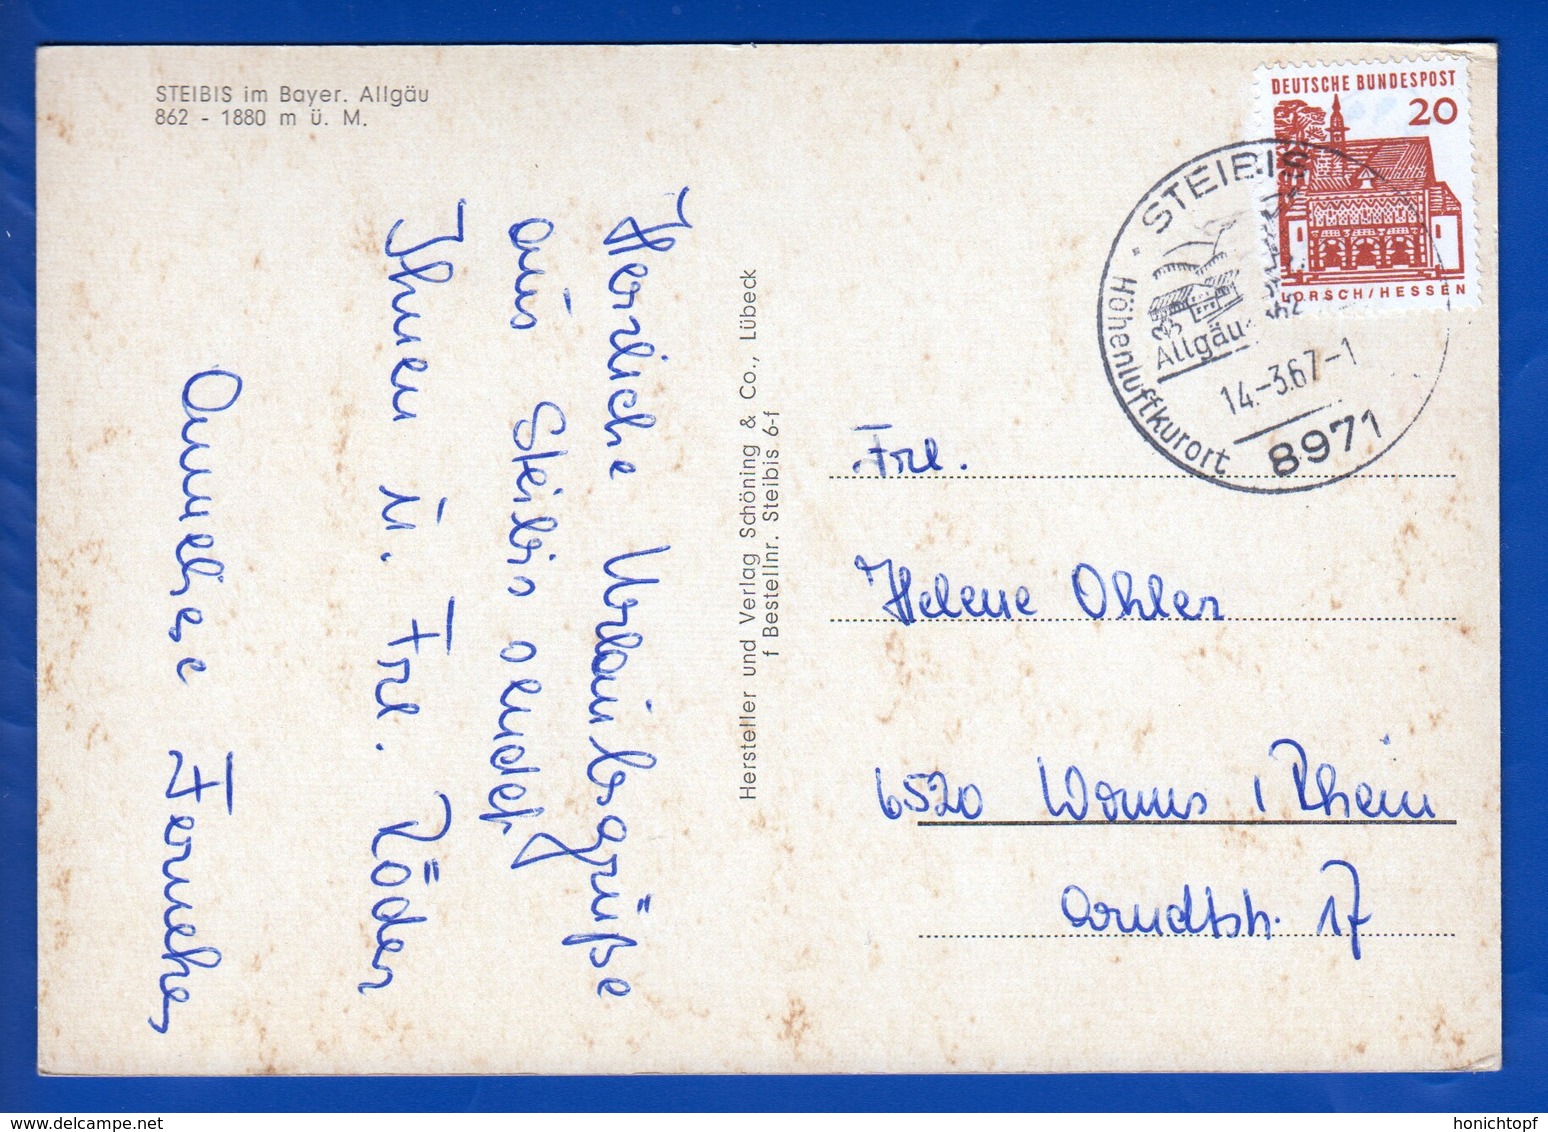 STEIBIS im Bayer. Allgäu
862 - 1880 m ü. M.
Herzliche Urlaubsgrüße
aus Steibis sendet
Ihnen u. Frl. Röder
Anneliese Fernekes
Hersteller und Verlag Schöning & Co., Lübeck
f Bestellnr. Steibis 6-f
DEUTSCHE BUNDESPOST
20
LORSCH/HESSEN
STEIBIS
Höhenluftkurort
Allgäu
14.-3.67-1
8971
Frl.
Helene Ohler
6520 Worms / Rhein
Arndtstr. 17
honichtopf